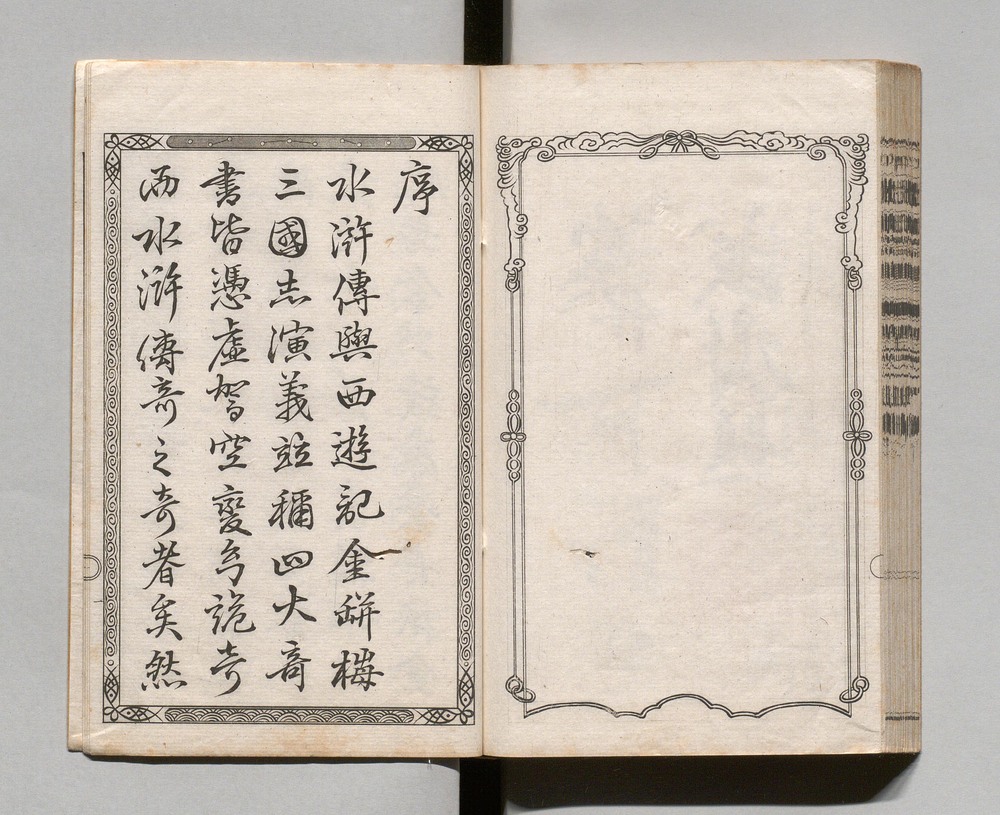 序
水滸傳與西遊記金缾梅
三國志演義竝穪四大竒
書皆憑虛駕空變幻詭奇
而水滸傳竒之奇者矣然